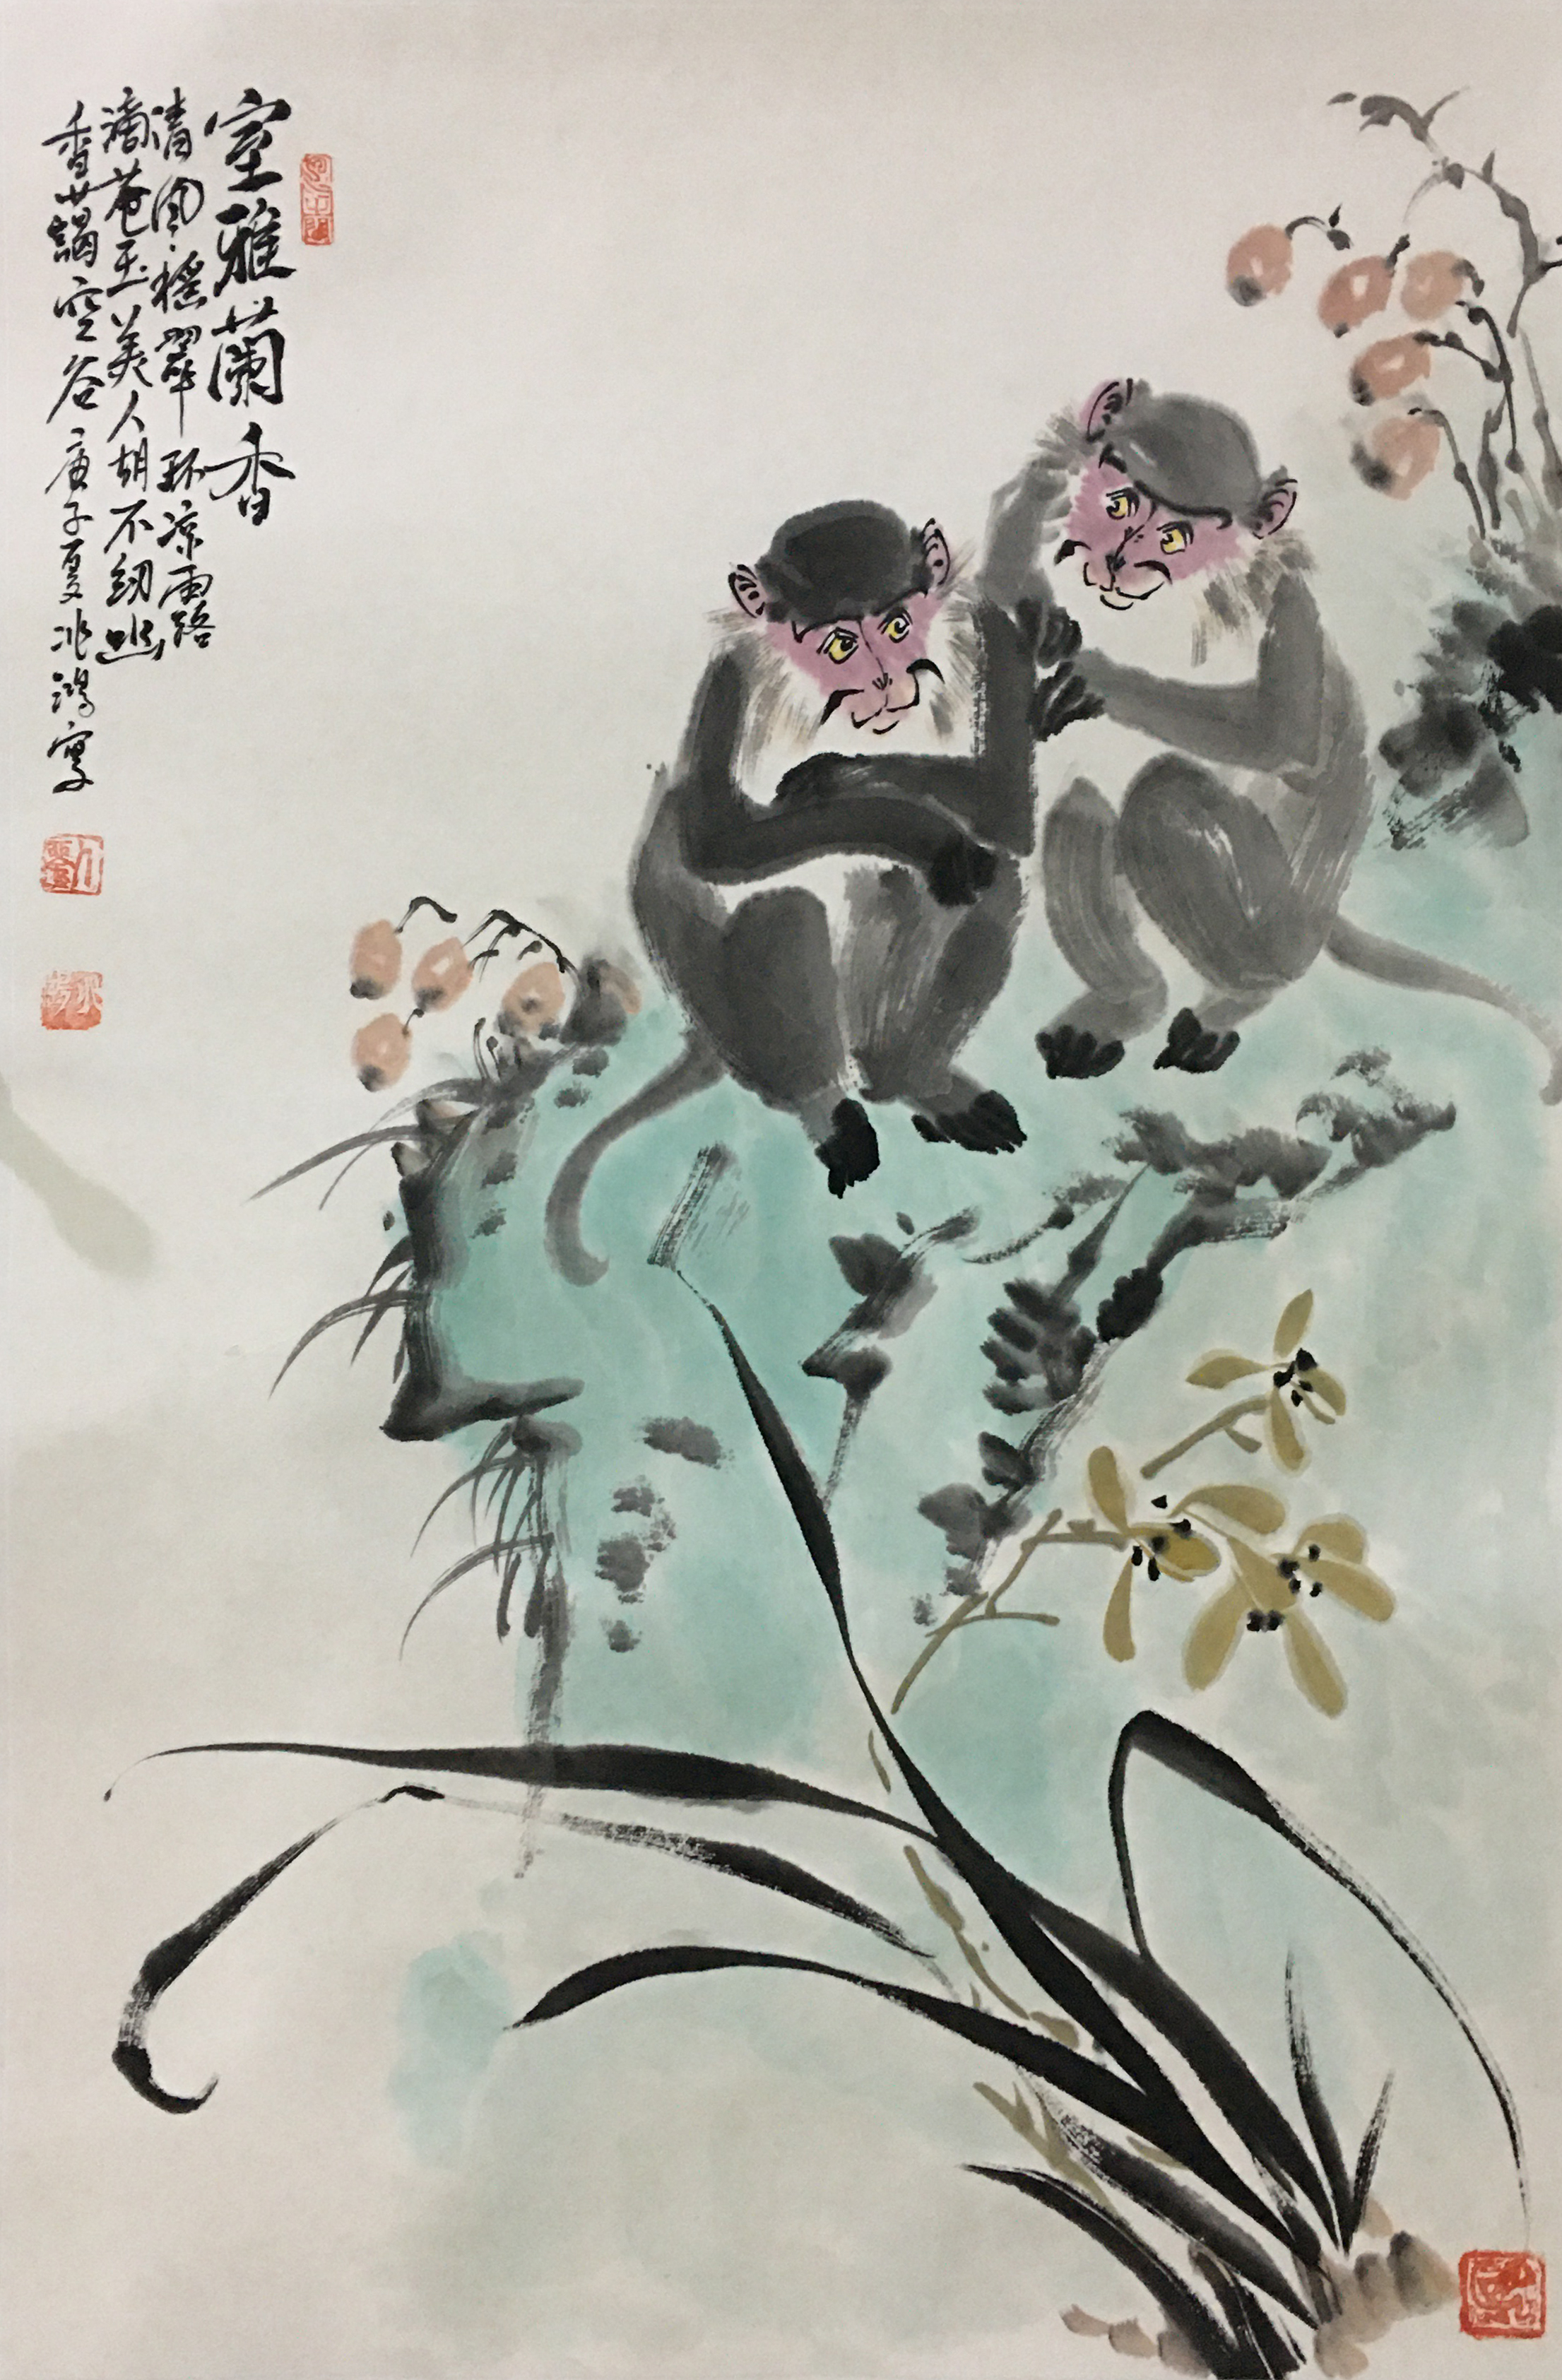 室雅蘭香
清風摇翠环凉露
滴蒼玉美人胡不紉幽
香藹空谷庚子夏兆鴻寫